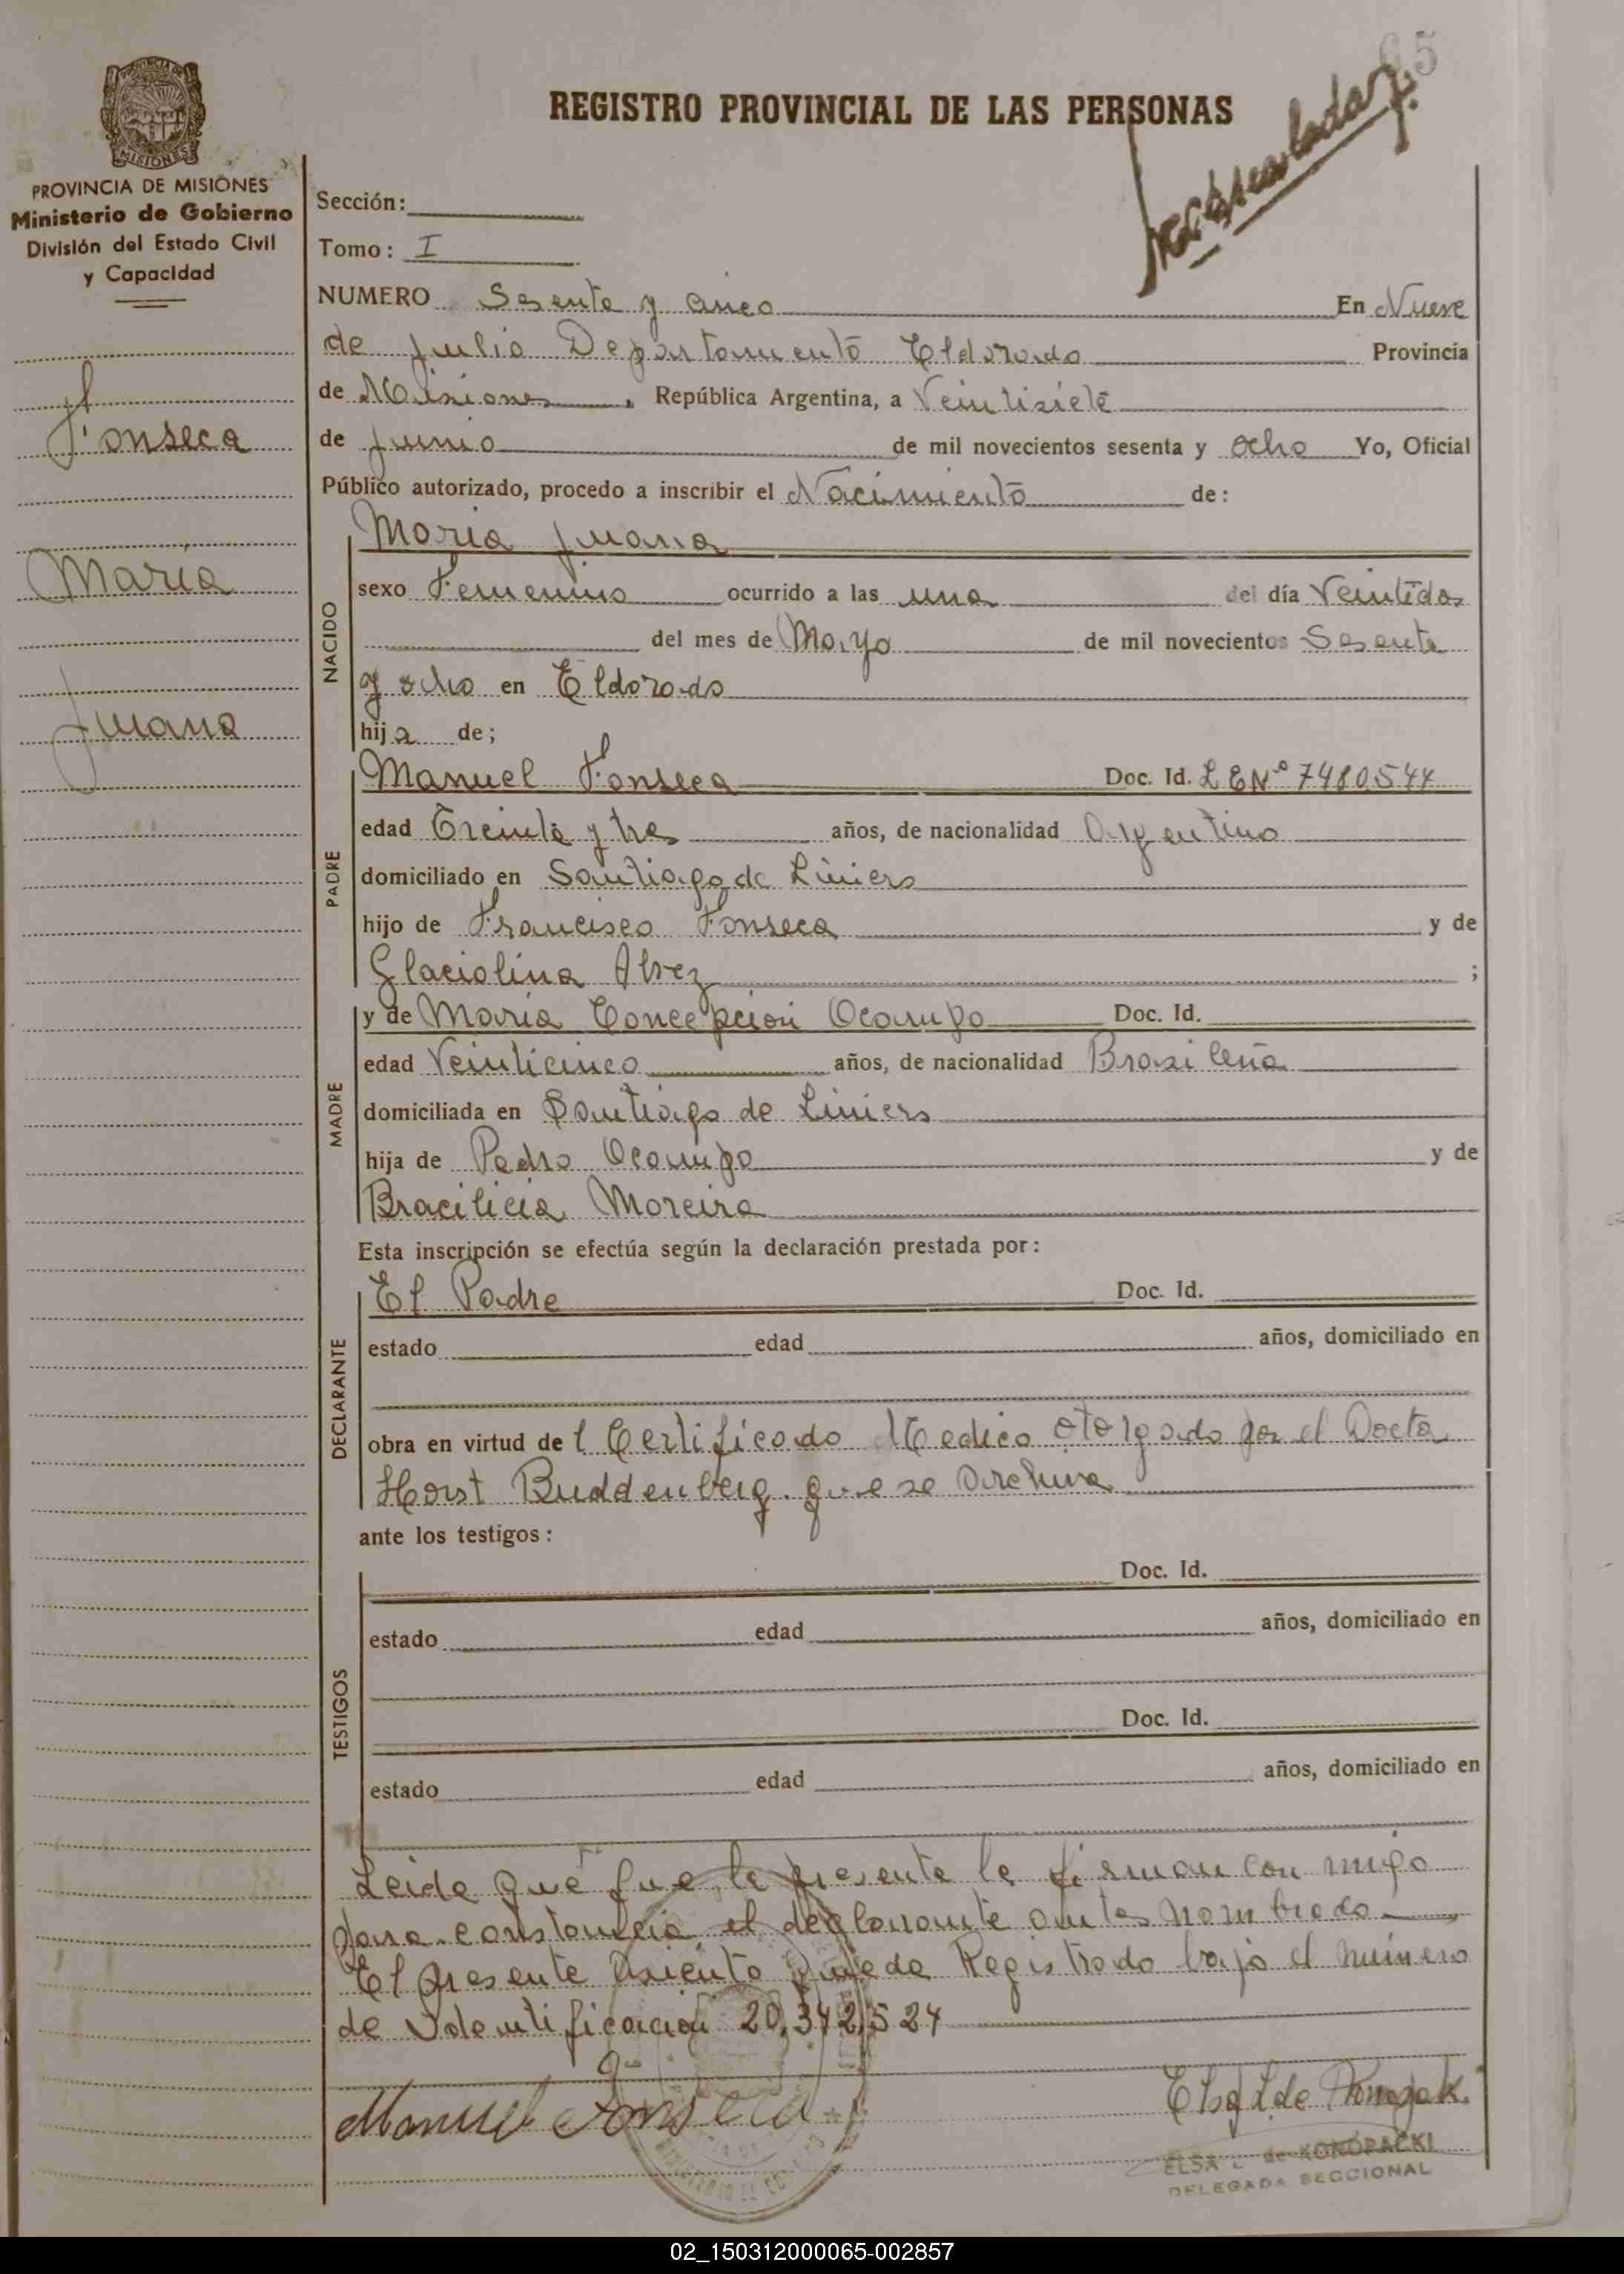 65
REGISTRO PROVINCIAL DE LAS PERSONAS
MISIONES
PROVINCIA DE MISIONES
Ministerio de Gobierno
División del Estado Civil
y Capacidad
Fonseca
María
Juana
Sección:
Tomo: I
NUMERO Sesenta y cinco En Nueve
de Julio Departamento Eldorado Provincia
de Misiones, República Argentina, a Veintisiete
de Junio de mil novecientos sesenta y ocho Yo, Oficial
Público autorizado, procedo a inscribir el Nacimiento de:
NACIDO
Maria Juana
sexo Femenino ocurrido a las una del día Veintidos
del mes de Mayo de mil novecientos Sesenta
y ocho en Eldorado
hija de;
PADRE
Manuel Fonseca Doc. Id. L E Nº 7480544
edad Treinta y tres años, de nacionalidad Argentino
domiciliado en Santiago de Liniers
hijo de Francisco Fonseca y de
Glaciolina Alvez ;
MADRE
y de María Concepcion Ocampo Doc. Id.
edad Veinticinco años, de nacionalidad Brasileña
domiciliada en Santiago de Liniers
hija de Pedro Ocampo y de
Bracilicia Moreira
Esta inscripción se efectúa según la declaración prestada por:
DECLARANTE
El Padre Doc. Id.
estado edad años, domiciliado en
obra en virtud del Certificado Medico otorgado por el Doctor
Horst Buddenberg. que se Archiva
ante los testigos:
TESTIGOS
Doc. Id.
estado edad años, domiciliado en
Doc. Id.
estado edad años, domiciliado en
Leida que fue, la presente la firman con migo
para constancia el declarante antes nombrado
El presente Asiento queda Registrado bajo el número
de Identificación 20,342,524
Manuel Fonseca
Elsa L. de Konopacki
ELSA L. de KONOPACKI
DELEGADA SECCIONAL
02_150312000065-002857